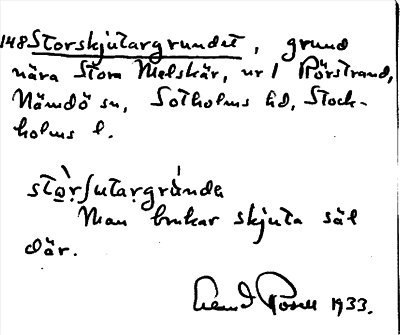 148 Storskjutargrundet, grund
nära Stora Melskär, nr 1 Rörstrand,
Nämdö sn, Sotholms hd, Stock-
holms l.
stòrʃutargrúndə
Man brukar skjuta säl
där.
1933.